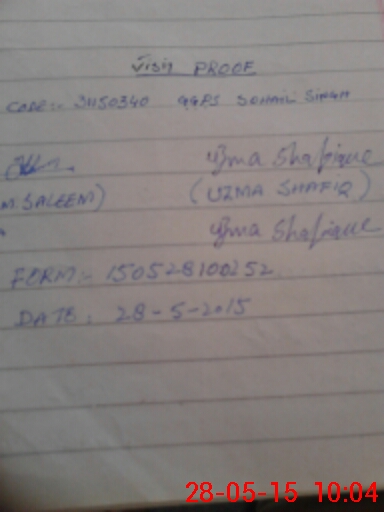 Visit PROOF
CODE:- 31150340 GGPS SOHAIL SINGH
(M.SALEEM)
Uzma Shafique
(UZMA SHAFIQ)
Uzma Shafique
FORM:- 150528100252
DATE: 28-5-2015
28-05-15 10:04